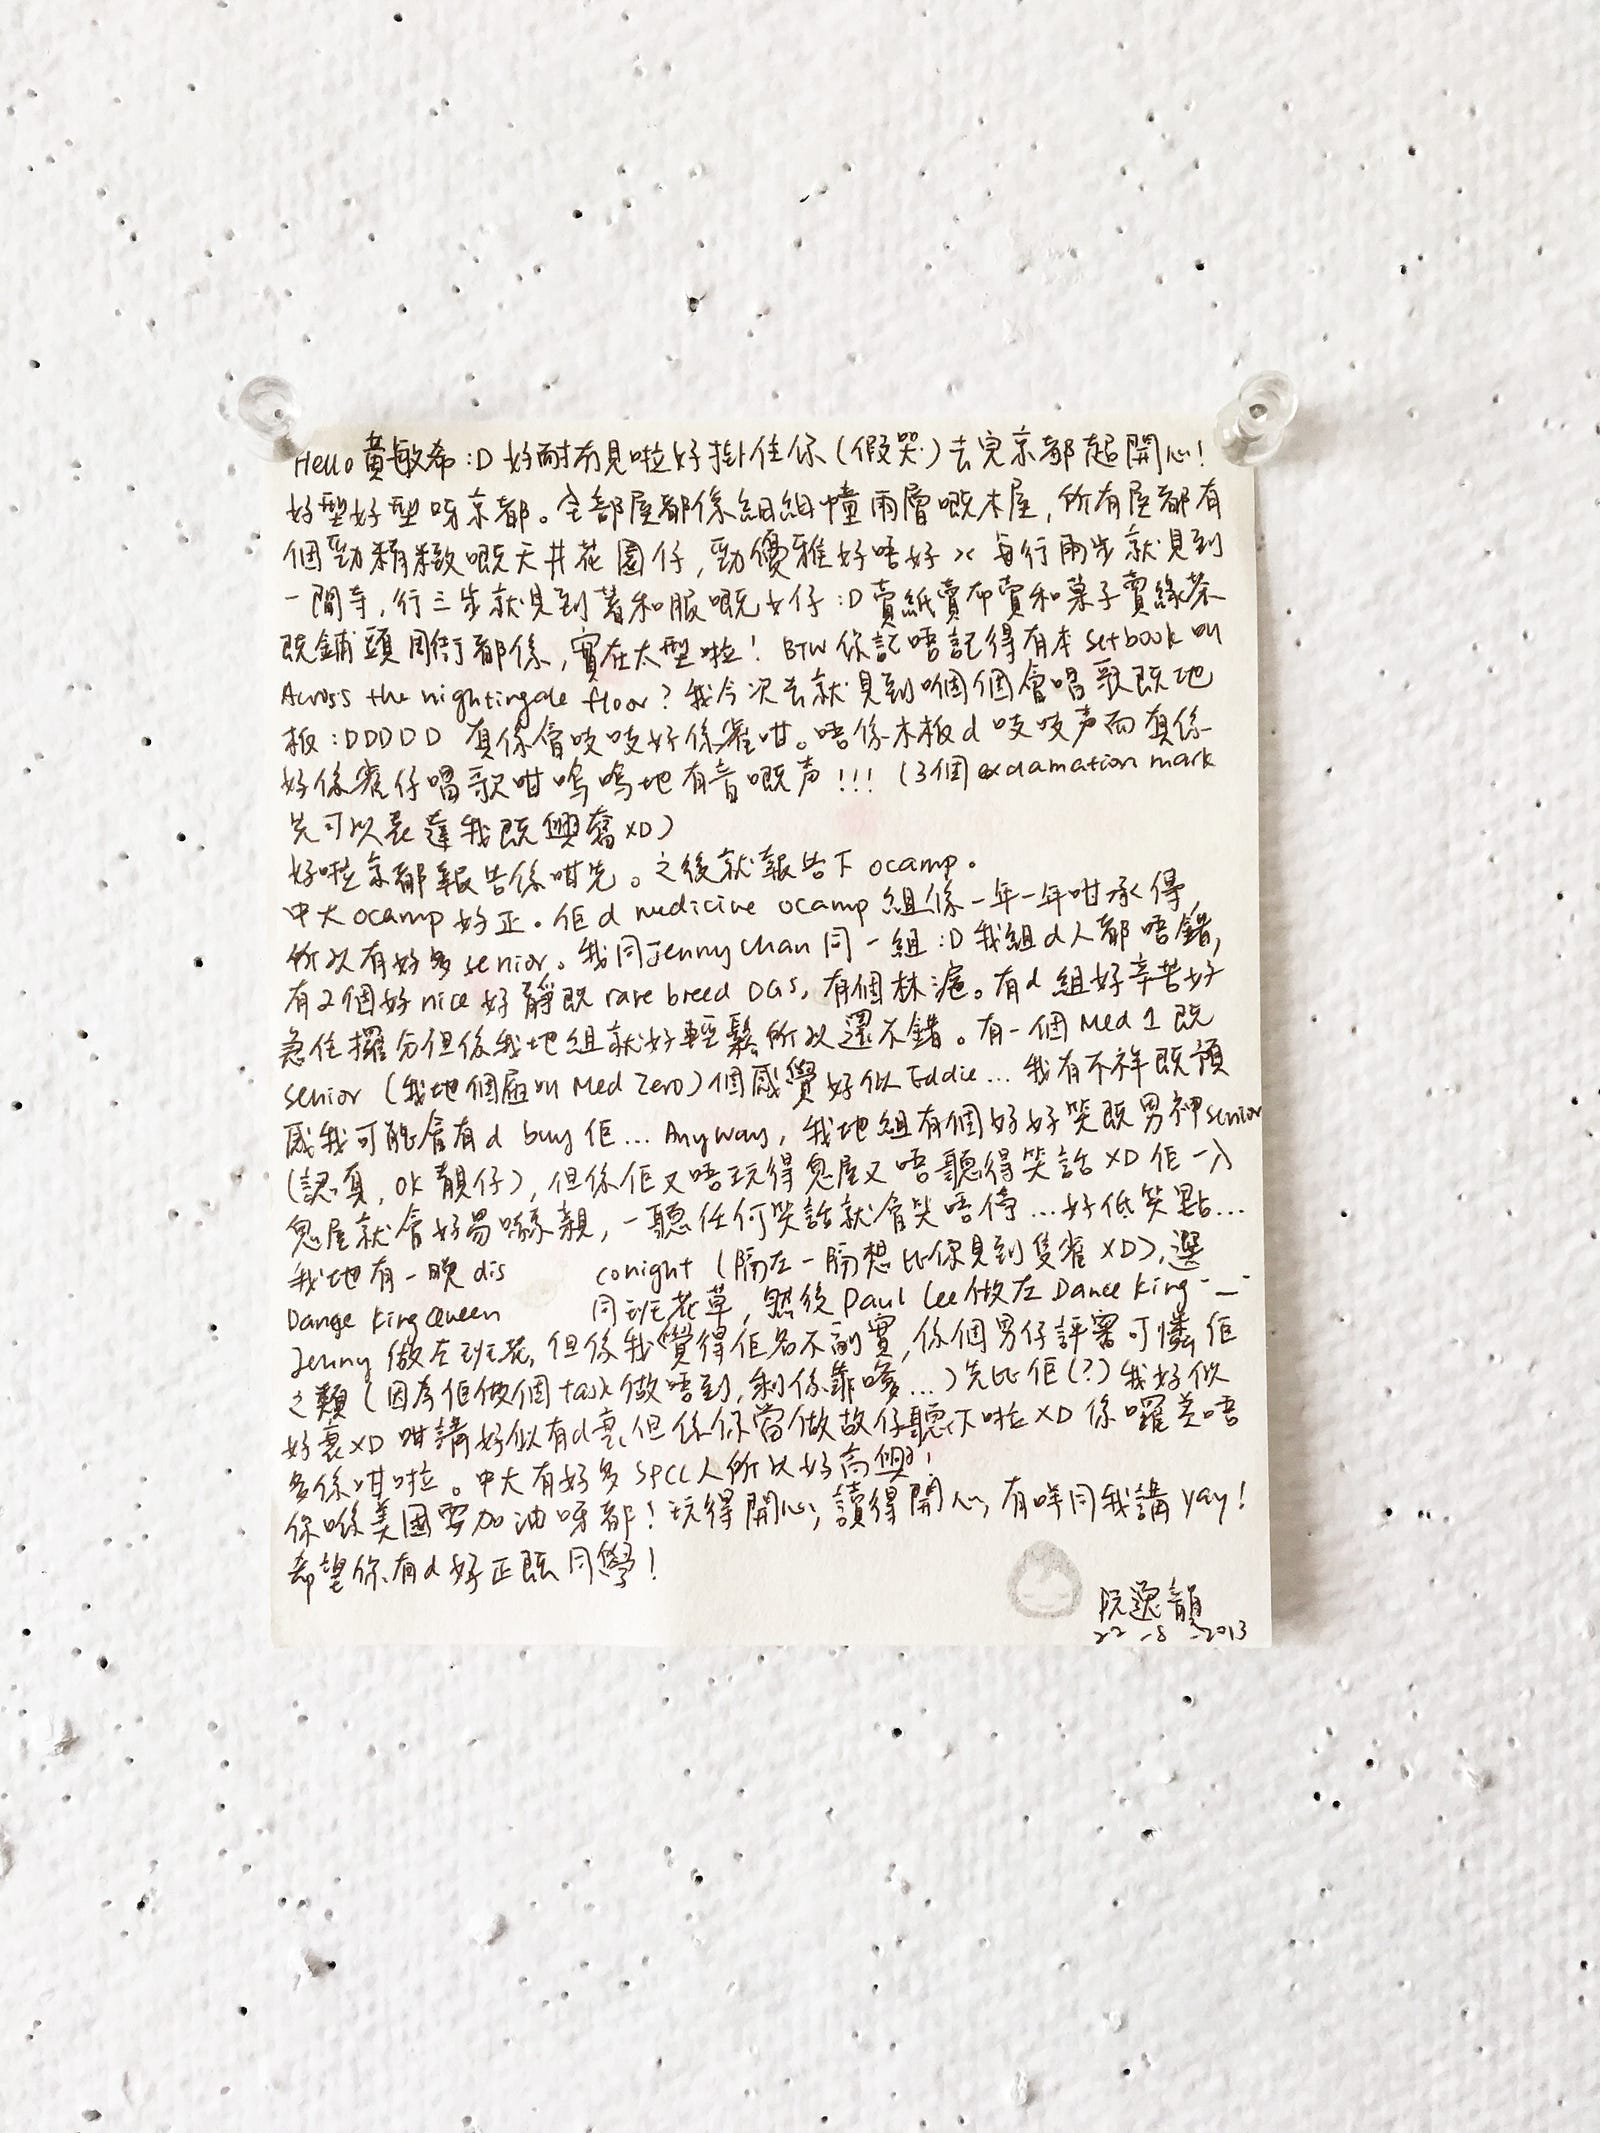 Hello 黃敏希 :D 好耐冇見啦好掛住你 (假哭) 去完京都超開心!
好型好型呀京都。全部屋都係細細幢兩層嘅木屋, 所有屋都有
個勁精緻嘅天井花園仔, 勁優雅好唔好 >< 每行兩步就見到
一間寺, 行三步就見到著和服嘅女仔 :D 賣紙賣布賣和菓子賣綠茶
既鋪頭周街都係, 實在太型啦! BTW 你記唔記得有本 setbook 叫
Across the nightingale floor? 我今次去就見到嗰個會唱歌既地
板 :DDDDD 真係會吱吱好係雀咁。唔係木板d吱吱声而真係
好係雀仔唱歌咁嗚嗚地有音嘅声!!! (3個 exclamation mark
先可以表達我既興奮 XD)
好啦京都報告係咁先。之後就報告下 ocamp。
中大 ocamp 好正。佢d medicine ocamp 組係一年一年咁承得,
所以有好多 senior。我同 Jenny Chan 同一組 :D 我組d人都唔錯,
有2個好 nice 好靜既 rare breed DGS, 有個林滬。有d組好辛苦好
急住攞分但係我地組就好輕鬆所以還不錯。有一個 Med 1 既
senior (我地個屆叫 Med Zero) 個感覺好似 Eddie... 我有不祥既預
感我可能會有d buy 佢... Anyway, 我地組有個好好笑既男神 senior
(認真, OK 靚仔), 但係佢又唔玩得鬼屋又唔聽得笑話 XD 佢一入
鬼屋就會好易嚇親, 一聽任何笑話就會笑唔停...好低笑點...
我地有一晚 dis conight (隔左一隔想比你見到隻雀 XD), 選
Dance King Queen 同班花草, 然後 Paul Lee 做左 Dance King -__-
Jenny 做左班花, 但係我覺得佢名不副實, 係個男仔評審可憐佢
之類 (因為佢做個 task 做唔到, 剩係靠嗲...) 先比佢 (?) 我好似
好衰 XD 咁講好似有d衰, 但係你當做故仔聽下啦 XD 係囉差唔
多係咁啦。中大有好多 SPCC 人所以好高興!
你喺美國要加油呀都! 玩得開心, 讀得開心, 有咩同我講 yay!
希望你有d好正既同學!
阮逸韻
22-8-2013